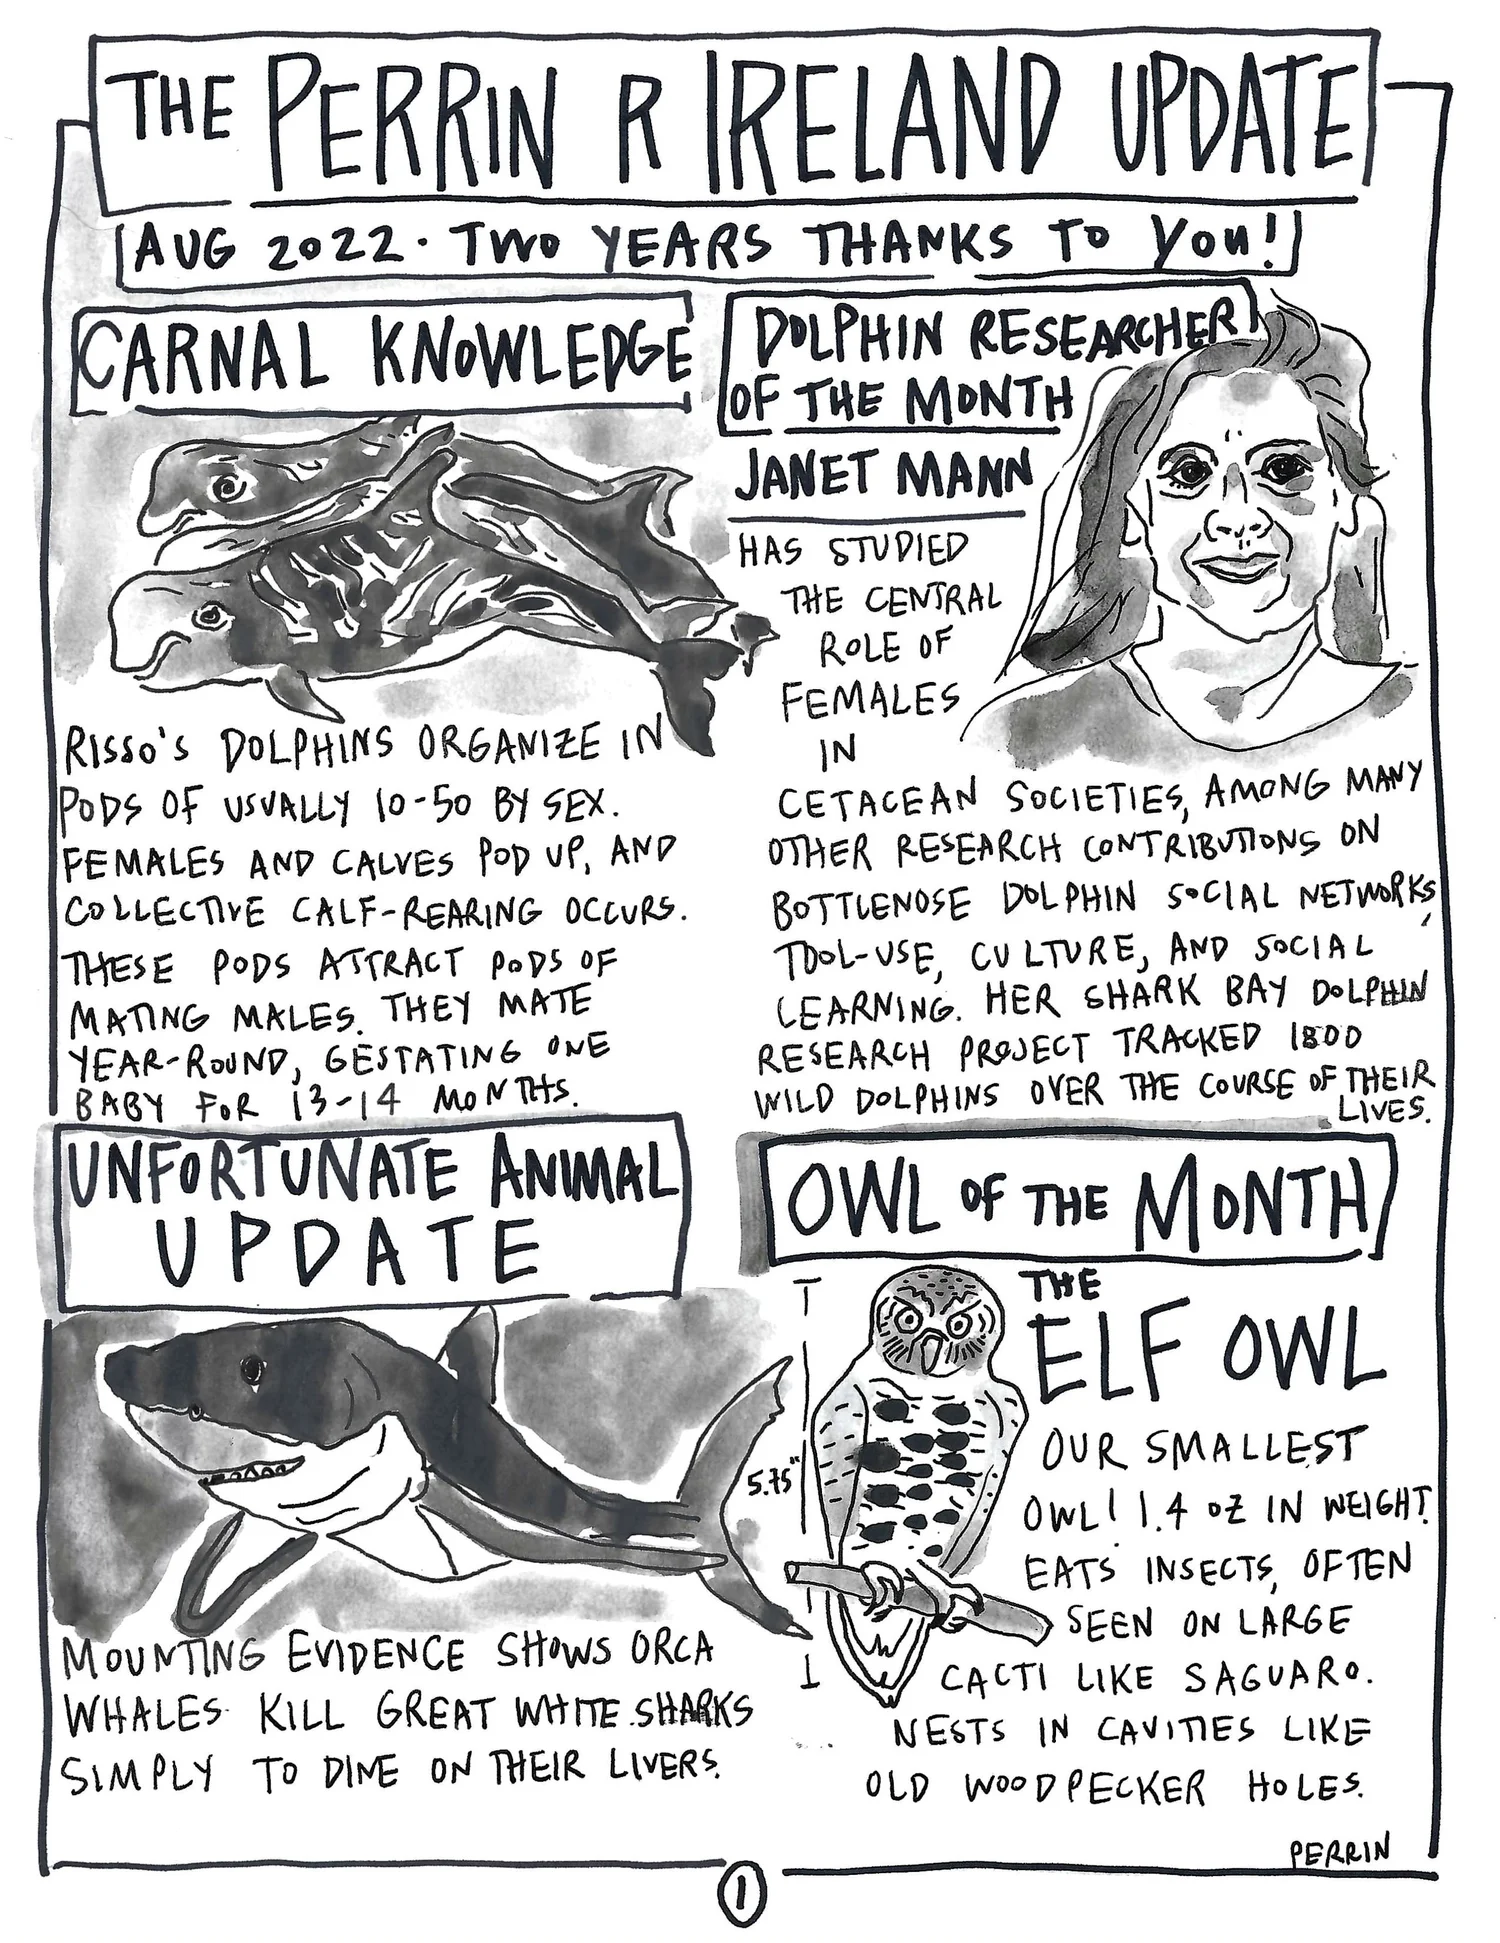 THE PERRIN R IRELAND UPDATE
AUG 2022. TWO YEARS THANKS TO YOU!
CARNAL KNOWLEDGE
RISSO'S DOLPHINS ORGANIZE IN
PODS OF USUALLY 10-50 BY SEX.
FEMALES AND CALVES POD UP, AND
COLLECTIVE CALF-REARING OCCURS.
THESE PODS ATTRACT PODS OF
MATING MALES. THEY MATE
YEAR-ROUND, GESTATING ONE
BABY FOR 13-14 MONTHS.
DOLPHIN RESEARCHER
OF THE MONTH
JANET MANN
HAS STUDIED
THE CENTRAL
ROLE OF
FEMALES
IN
CETACEAN SOCIETIES, AMONG MANY
OTHER RESEARCH CONTRIBUTIONS ON
BOTTLENOSE DOLPHIN SOCIAL NETWORKS,
TOOL-USE, CULTURE, AND SOCIAL
LEARNING. HER SHARK BAY DOLPHIN
RESEARCH PROJECT TRACKED 1800
WILD DOLPHINS OVER THE COURSE OF THEIR
LIVES.
UNFORTUNATE ANIMAL
UPDATE
MOUNTING EVIDENCE SHOWS ORCA
WHALES KILL GREAT WHITE SHARKS
SIMPLY TO DINE ON THEIR LIVERS.
OWL OF THE MONTH
THE
ELF OWL
5.75"
OUR SMALLEST
OWL! 1.4 OZ IN WEIGHT.
EATS INSECTS, OFTEN
SEEN ON LARGE
CACTI LIKE SAGUARO.
NESTS IN CAVITIES LIKE
OLD WOODPECKER HOLES.
PERRIN
1